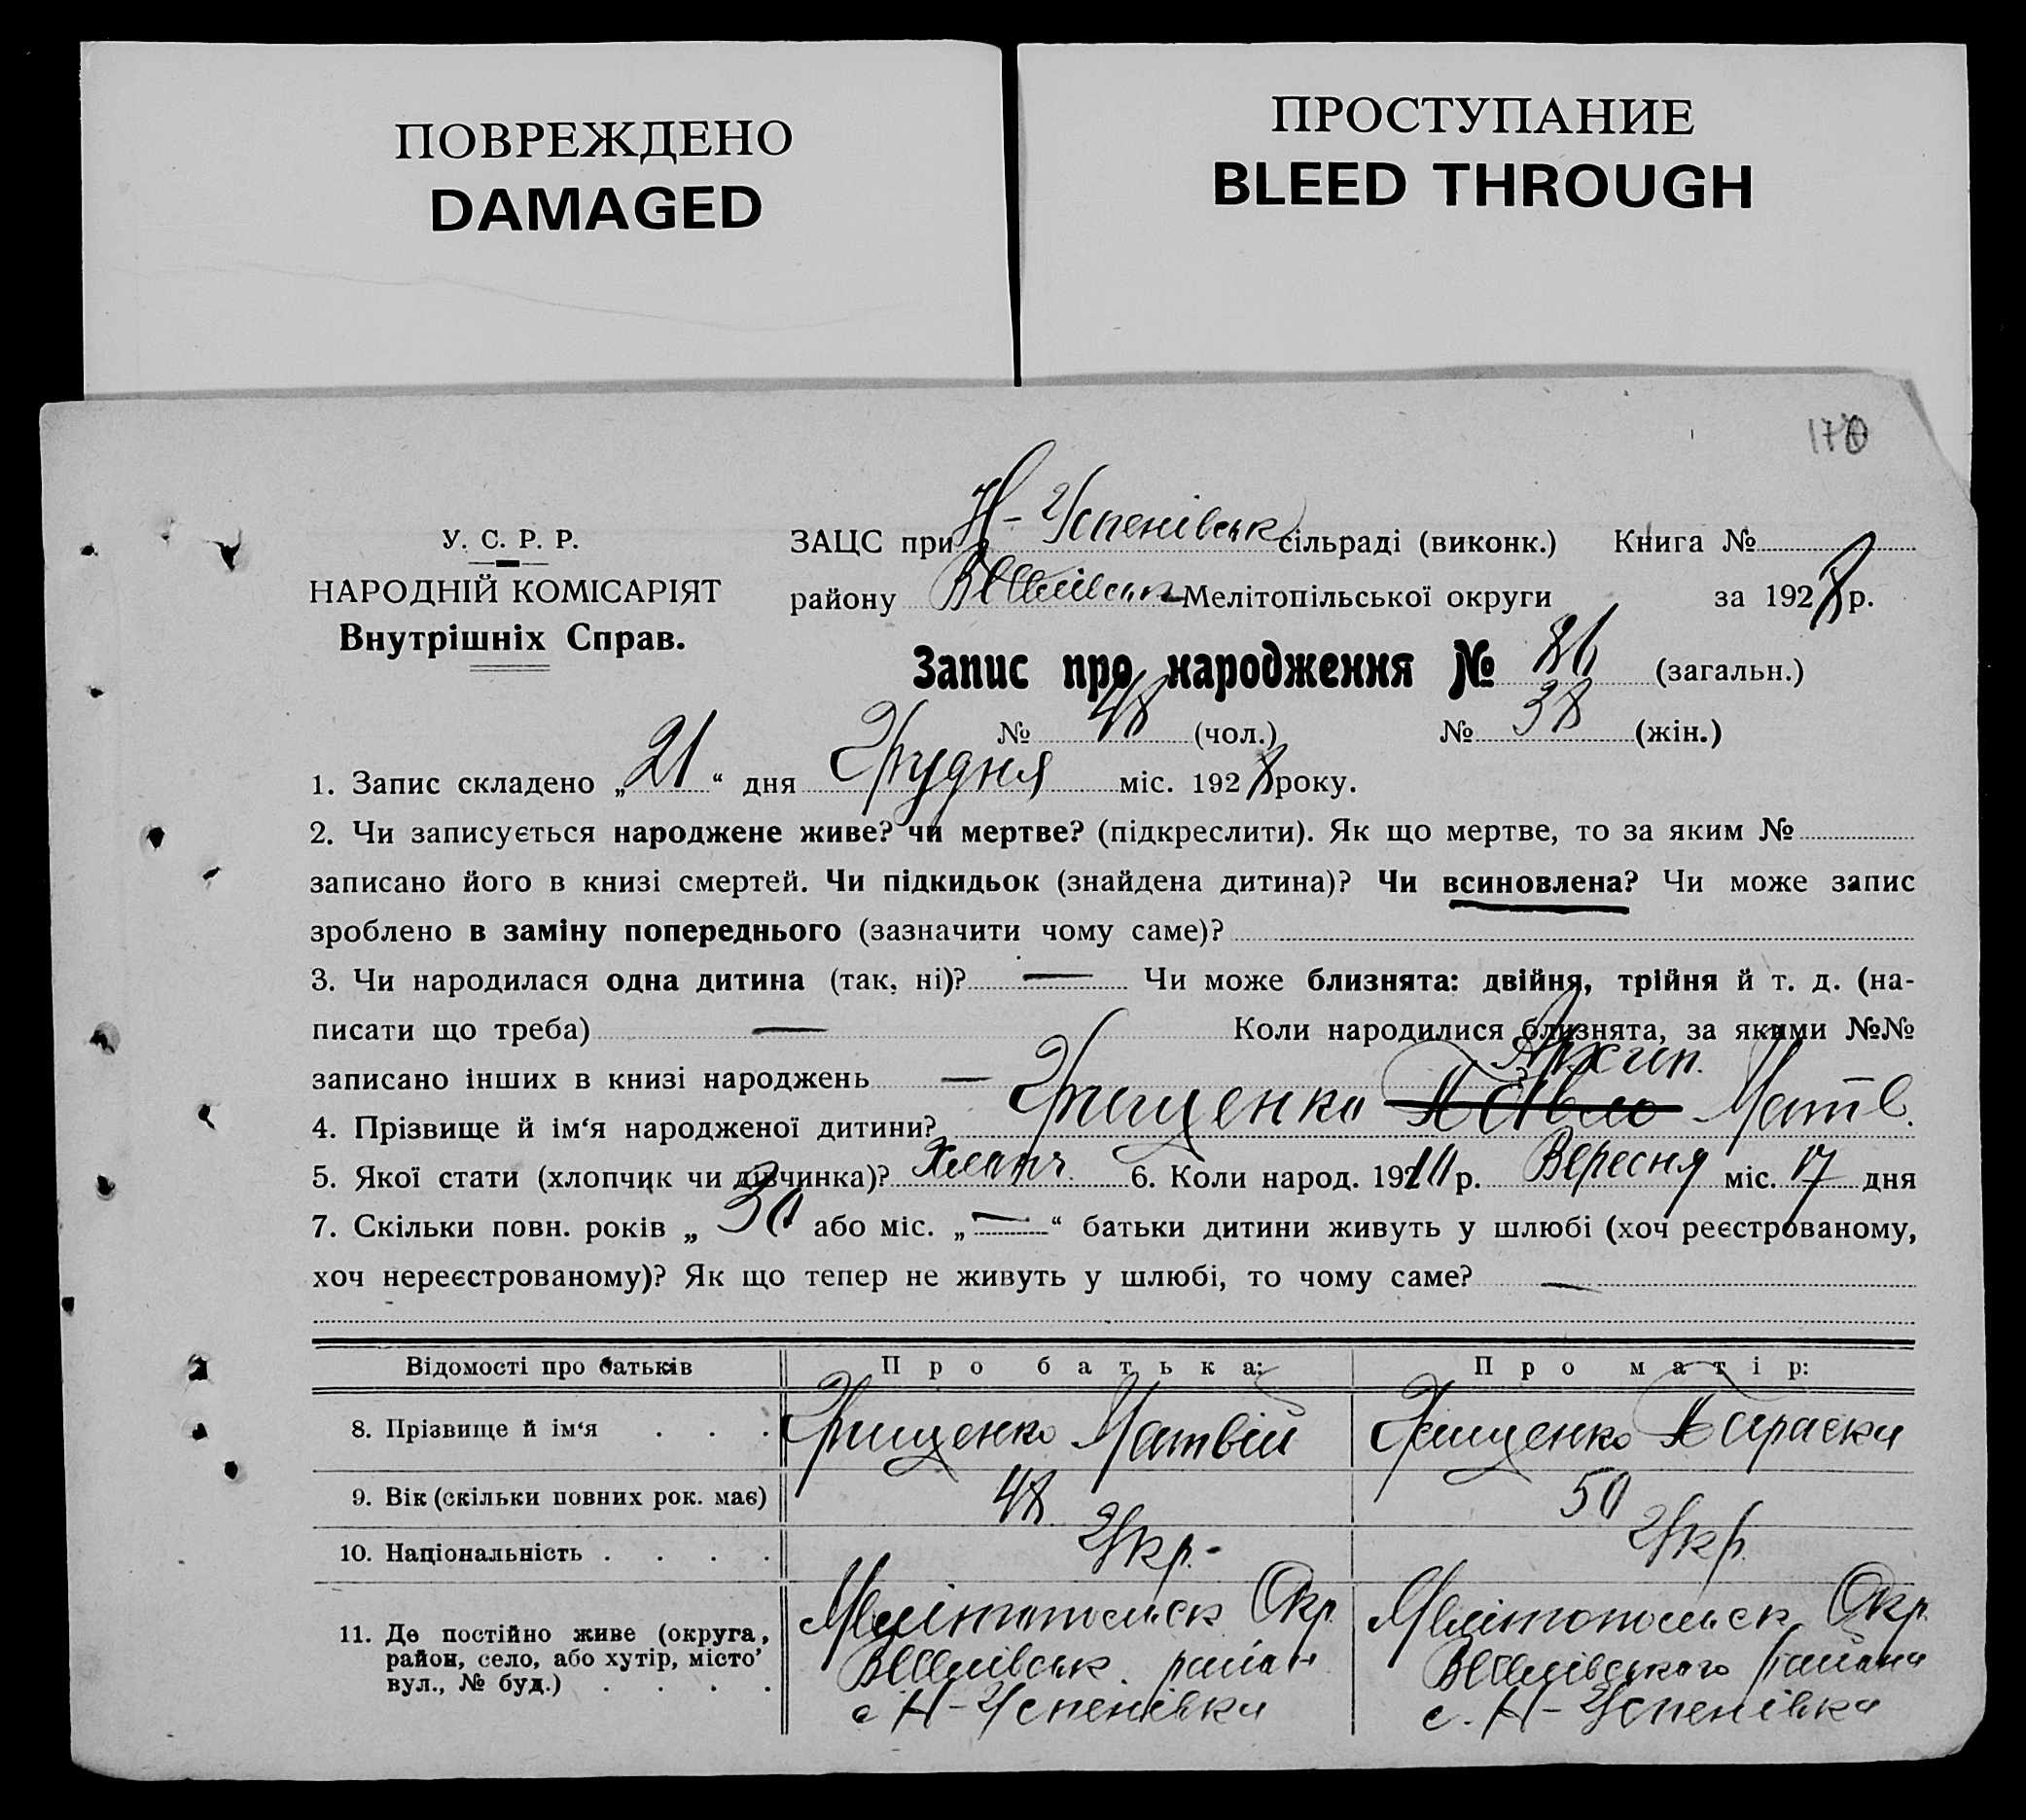 ПОВРЕЖДЕНО
DAMAGED
ПРОСТУПАНИЕ
BLEED THROUGH
170
У. С. Р. Р.
НАРОДНІЙ КОМІСАРІЯТ
Внутрішніх Справ.
ЗАЦС при Н-Успенівськ сільраді (виконк.) Книга №
району Мелітопільської округи за 1928 р.
Запис про народження № 86 (загальн.)
№ 48 (чол.) № 38 (жін.)
1. Запис складено „21“ дня Грудня міс. 1928 року.
2. Чи записується народжене живе? чи мертве? (підкреслити). Як що мертве, то за яким №
записано його в книзі смертей. Чи підкидьок (знайдена дитина)? Чи всиновлена? Чи може запис
зроблено в заміну попереднього (зазначити чому саме)?
3. Чи народилася одна дитина (так, ні)? — Чи може близнята: двійня, трійня й т. д. (на-
писати що треба) — Коли народилися близнята, за якими №№
записано інших в книзі народжень —
Архип.
4. Прізвище й ім‘я народженої дитини? Грищенко Павло Матв.
5. Якої стати (хлопчик чи дівчинка)? Хлопч. 6. Коли народ. 1910 р. Вересня міс. 17 дня
7. Скільки повн. років „30 або міс. „—“ батьки дитини живуть у шлюбі (хоч реєстрованому,
хоч нереєстрованому)? Як що тепер не живуть у шлюбі, то чому саме? —
Відомості про батьків Про батька: Про матір:
8. Прізвище й ім‘я . . . Грищенко Матвій Грищенко Параска
9. Вік (скільки повних рок. має) 48 50
10. Національність . . . . Укр. - Укр.
11. Де постійно живе (округа,
район, село, або хутір, місто’
вул., № буд.) . . . .
Мелітопольск Окр.
район
с Н-Успенівка
Мелітопольск Окр.
района
с. Н-Успенівка